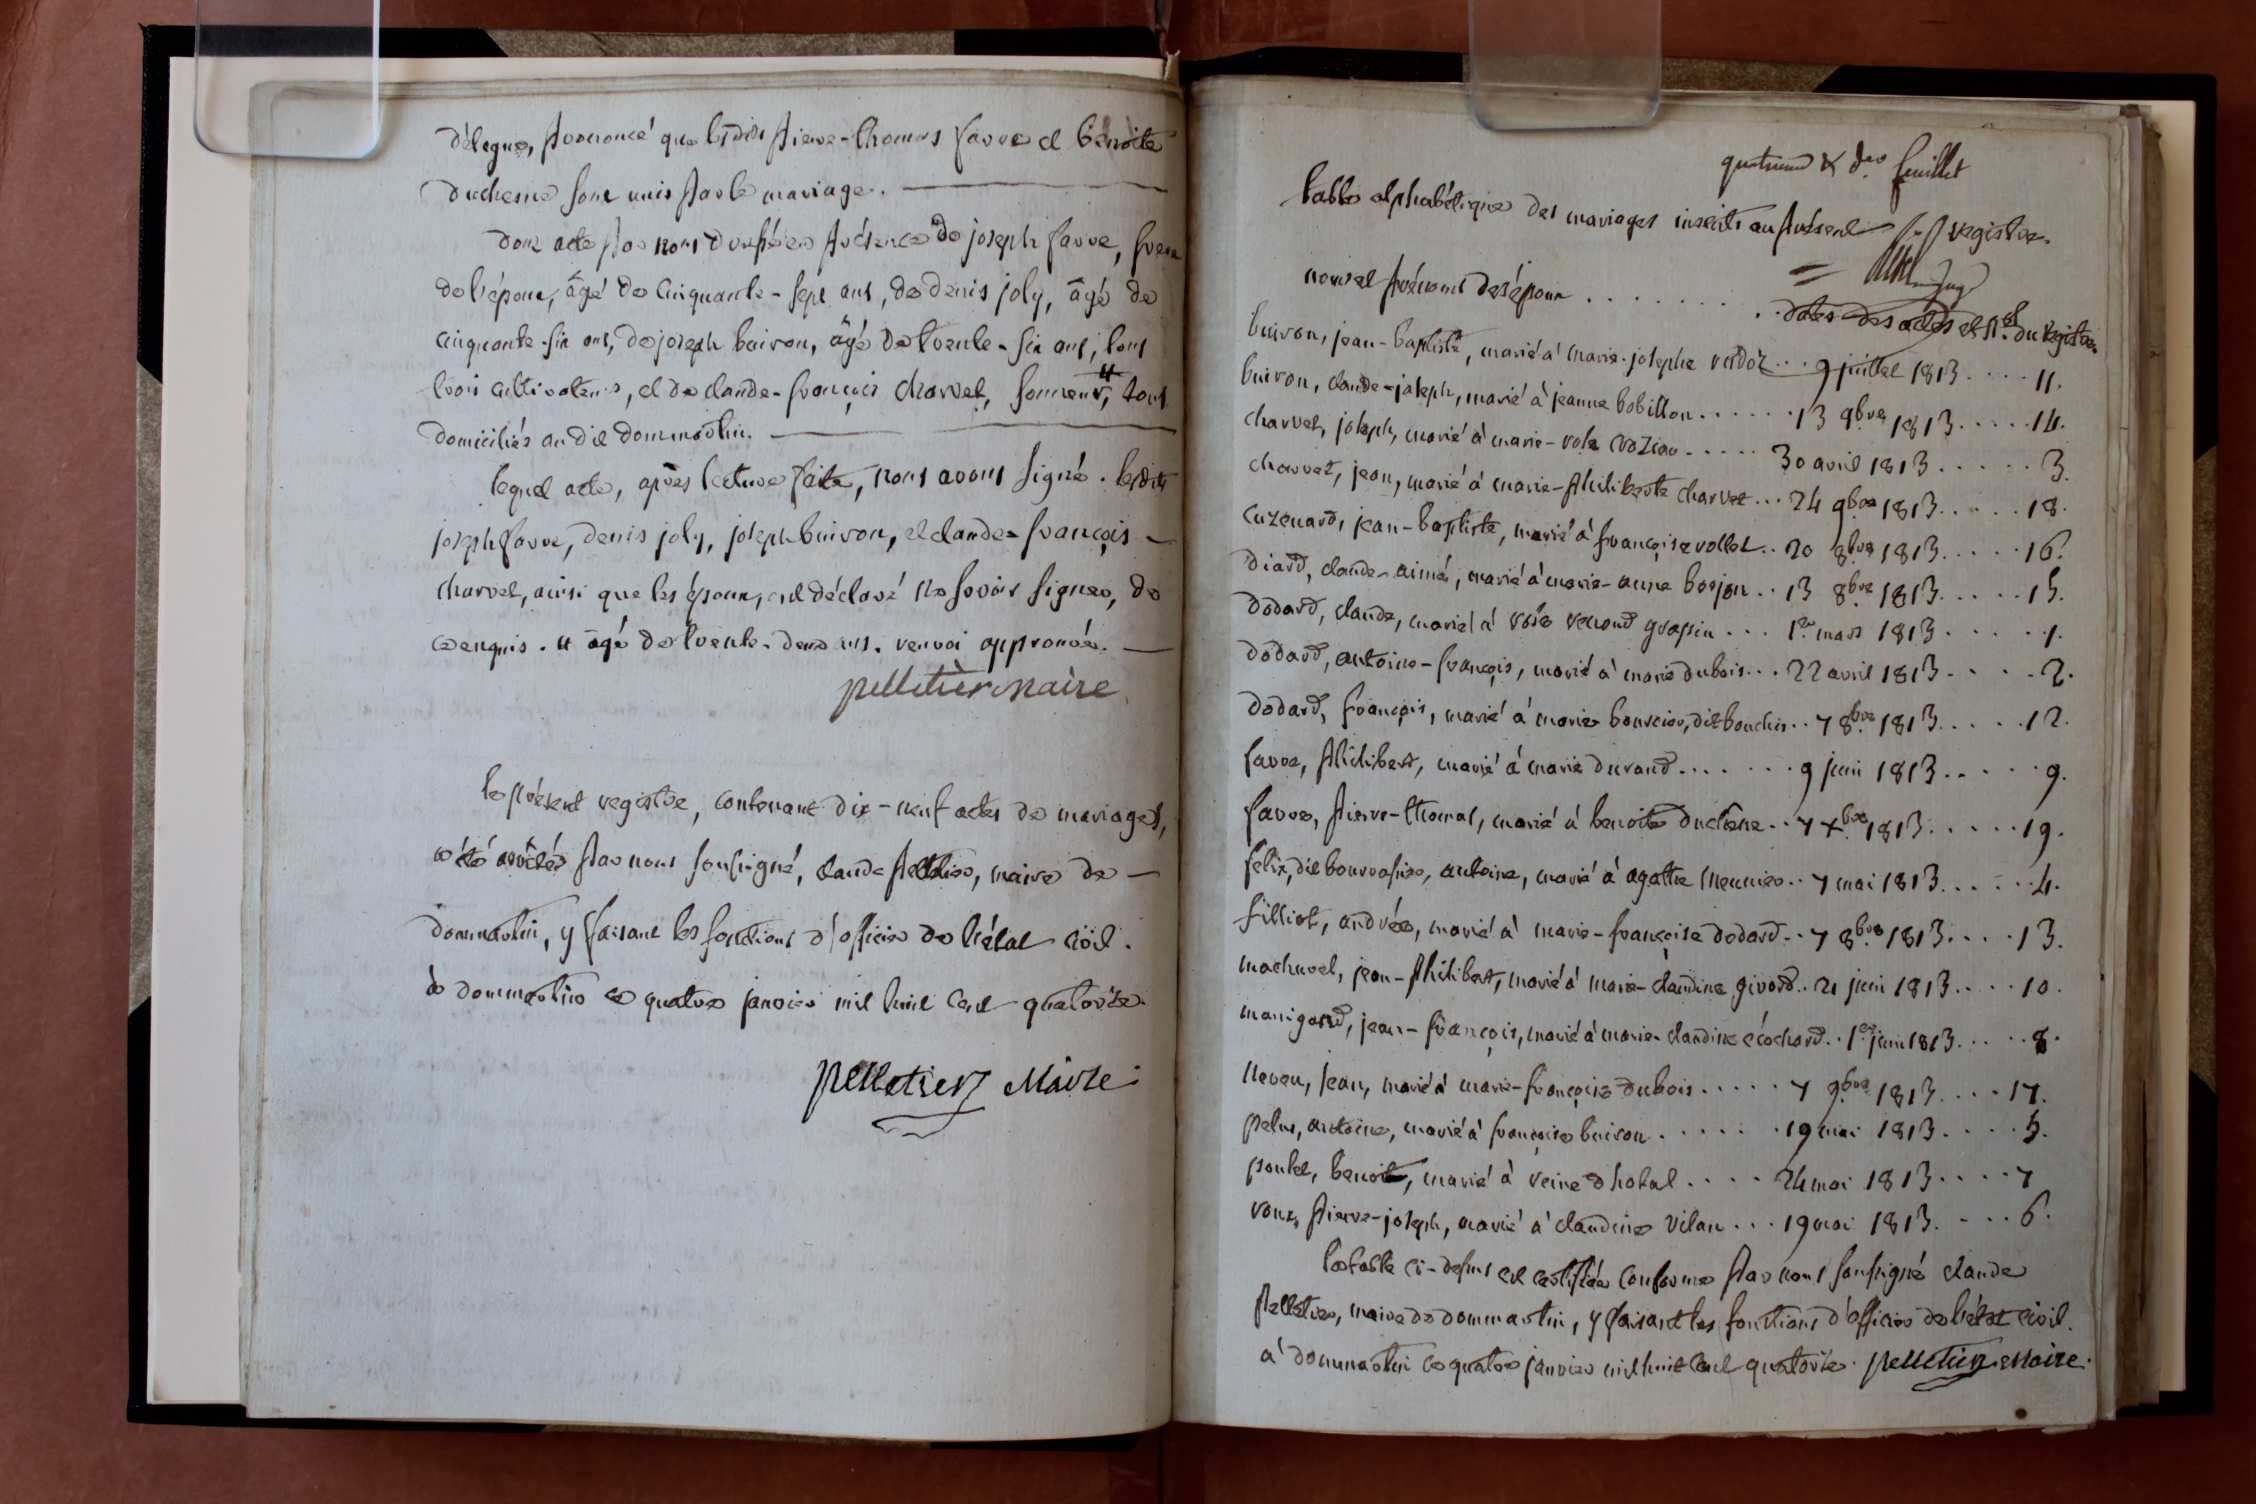 délegue, prononcé que lesdits pierre-thomas favre et benoite
duchesne sont unis par le mariage.
dont acte par nous dressé en présence de joseph favre, frere
de l'époux, âgé de cinquante-sept ans, de denis joly, âgé de
cinquante-six ans, de joseph buiron, âgé de trente-six ans, tous
trois cultivateurs, et de claude-françois charvet, #, tous
domiciliés audit dommartin.
lequel acte, après lecture faite, nous avons signé. lesdits
joseph favre, denis joly, joseph buiron, et claude-françois
charvet, ainsi que les époux, ont déclaré ne savoir signer, de
ce enquis. # âgé de trente-deux ans. renvoi approuvé.
pelletier maire
le présent registre, contenant dix-neuf actes de mariages,
a été arrêté par nous soussigné, claude pelletier, maire de
dommartin, y faisant les fonctions d'officier de l'état civil.
à dommartin ce quatre janvier mil huit cent quatorze.
pelletier Maire
quatrieme & der feuillet
table alphabétique des mariages inscrits au présent registre.
noms et prénoms des époux . . . . . . . dates des actes et nos du registre.
buiron, jean-baptiste, marié à marie-josephe verdoz . . . 9 juillet 1813 . . . . 11.
buiron, claude-joseph, marié à jeanne bobillon . . . . . . 13 9bre 1813 . . . . . 14.
charvet, joseph, marié à marie-rose croziau . . . . . 30 avril 1813 . . . . . 3.
charvet, jean, marié à marie-philiberte charvet . . . 24 9bre 1813 . . . . . 18.
cuzenard, jean-baptiste, marié à françoise vollet . . 20 8bre 1813 . . . . . 16.
diard, claude-aimé, marié à marie-anne borjon . . 13 8bre 1813 . . . . . 15.
dodard, claude, marié à rose renoud grappin . . . 1er mars 1813 . . . . . 1.
dodard, antoine-françois, marié à marie dubois . . . 22 avril 1813 . . . . . 2.
dodard, françois, marié à marie bourcier, dit bouchis . . 7 8bre 1813 . . . . . 12.
favre, philibert, marié à marie durand . . . . . . . 9 juin 1813 . . . . . 9.
favre, pierre-thomas, marié à benoite duchesne . . 7 xbre 1813 . . . . . 19.
felix, dit bourrassier, antoine, marié à agathe meunier . . 7 mai 1813 . . . . . . 4.
filliot, andrée, marié à marie-françoise dodard . . 7 8bre 1813 . . . . 13.
machurel, jean-philibert, marié à marie-claudine givord . . 21 juin 1813 . . . . 10.
manigand, jean-françois, marié à marie-claudine écochard . . 1er juin 1813 . . . . . 8.
neveu, jean, marié à marie-françoise dubois . . . . . 7 9bre 1813 . . . . 17.
pelus, antoine, marié à françoise buiron . . . . . . 19 mai 1813 . . . . 5.
poulet, benoit, marié à reine dhotal . . . . 24 mai 1813 . . . . 7
roux, pierre-joseph, marié à claudine vilan . . . 19 mai 1813 . . . . 6.
la table ci-dessus est certifiée conforme par nous soussigné claude
pelletier, maire de dommartin, y faisant les fonctions d'officier de l'état civil.
à dommartin ce quatre janvier mil huit cent quatorze. pelletier Maire.